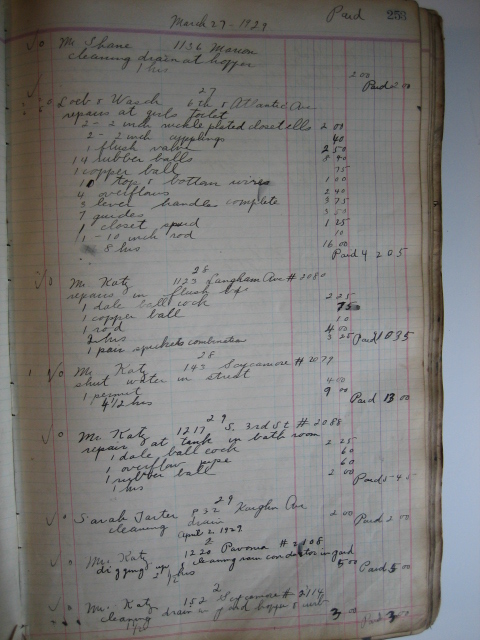 March 27 - 1929 Paid 256
Mr Shane 1136 Marion
cleaning drain at hopper
1 hrs 2 00 Paid 2 00
27
Loeb & Wasch 6th & Atlantic Ave
repairs at girls toilet
2 - 2 inch nickle plated closet ells 2 00
2 - 2 inch 40
1 flush valve 2 50
14 rubber balls 8 40
1 copper ball 75
10 top & bottom wires 1 00
4 overflows 2 40
3 lever handles complete 3 75
7 guides
1 closet spud 1 25
1 - 10 inch rod 10
8 hrs 16 00 Paid 42 05
28
Mr Katz 1123 Langham Ave # 2080
repairs in flush
1 dale ball cock 2 25
1 copper ball 75
1 rod 10
2 hrs 4 00
1 pair combination 3 25 Paid 10 35
28
Mr Katz 143 Sycamore # 2079
shut water in street
1 permit 4 00
4 1/2 hrs 9 00 Paid 13 00
29
Mr Katz 1217 S. 3rd St # 2088
repair at tank in bath room
1 dale ball cock 2 25
1 overflow pipe 60
1 rubber ball 60
1 hrs 2 00 Paid 5 45
29
Sarah Tarter 832 Kaighn Ave
cleaning drain 2 00 Paid 2 00
April 2 1929
2
Mr. Katz 1220 Pavonia # 2108
digging up cleaning rain conductor in yard
2 1/2 hrs 5 00 Paid 5 00
2
Mr. Katz 152 Sycamore # 2114
cleaning drain in yard hopper & 3 00 Paid 3 00